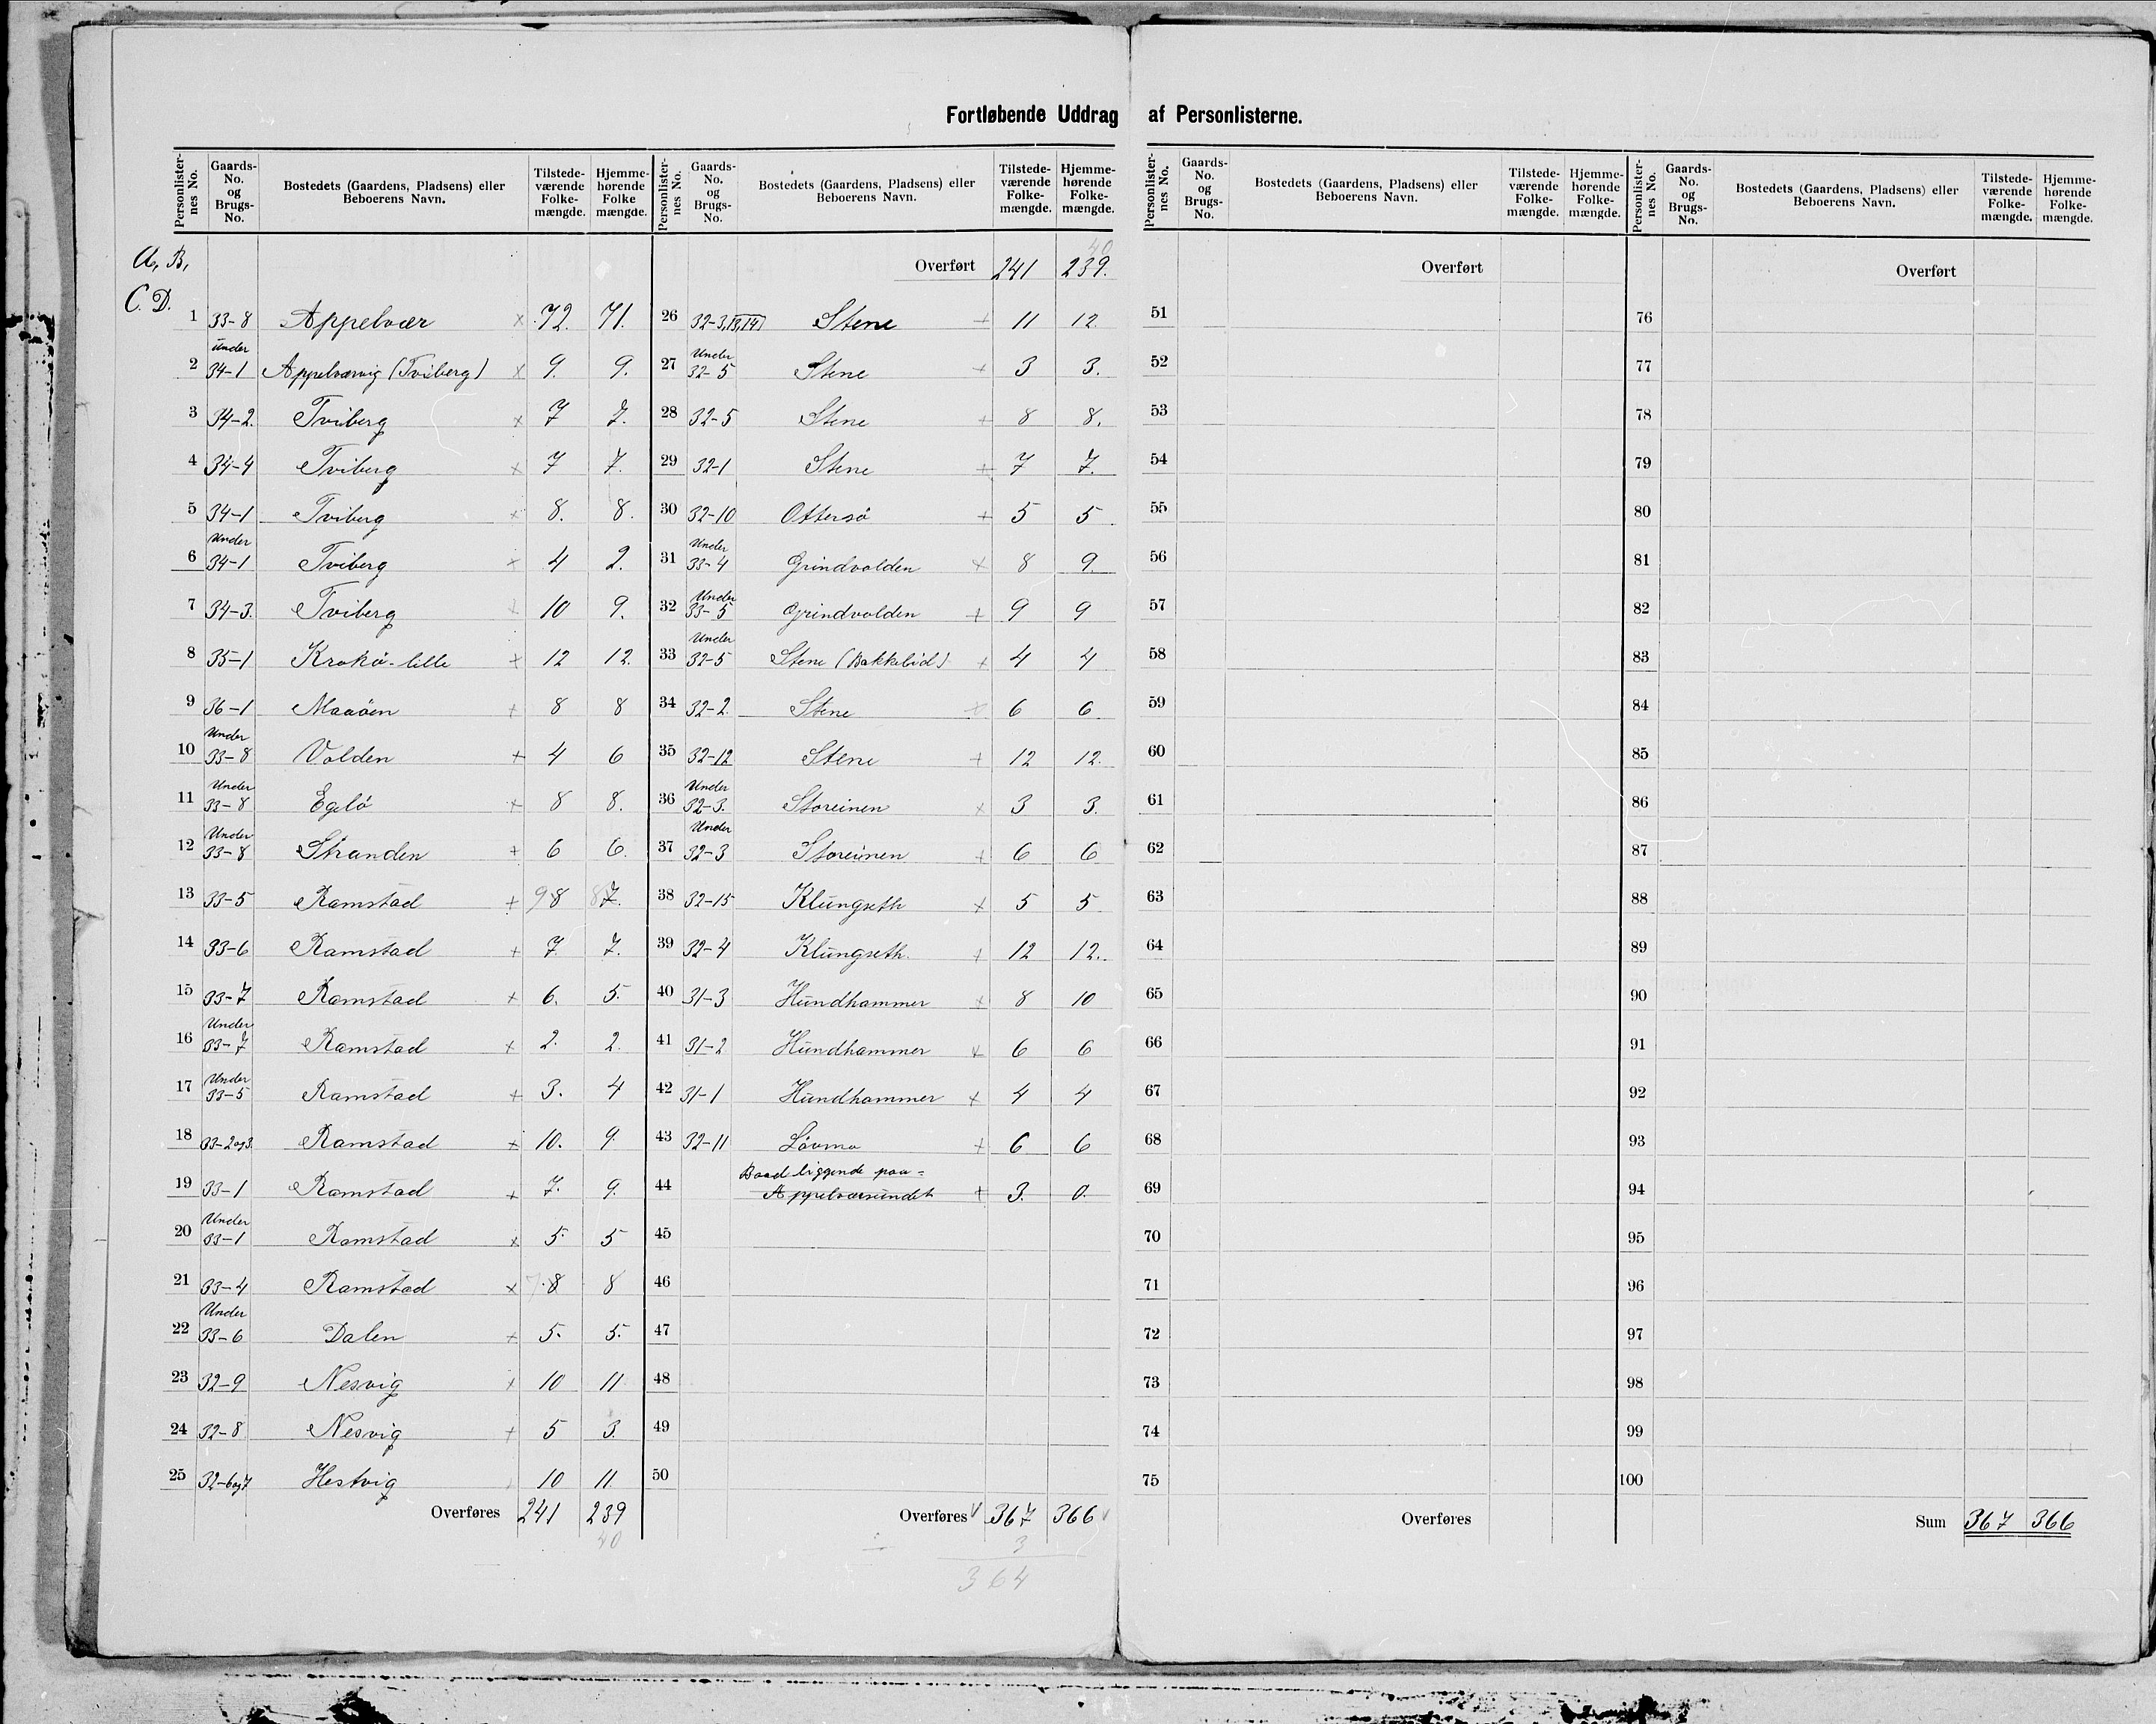 Fortløbende Uddrag af Personlisterne.
Personlisternes No. | Gaards-No. og Brugs-No. | Bostedets (Gaardens, Pladsens) eller Beboerens Navn. | Tilstedeværende Folkemængde. | Hjemmehørende Folke mængde.
A, B, C. D.
1 33-8 Appelvær x 72. 71.
2 under 34-1 Appelværvig (Tviberg) x 9. 9.
3 34-2. Tviberg x 7 7.
4 34-4 Tviberg x 7 7.
5 34-1 Tviberg x 8. 8.
6 Under 34-1 Tviberg x 4 2.
7 34-3. Tviberg x 10 9.
8 35-1 Krokö-lille x 12 12.
9 36-1 Maaöen + 8 8
10 Under 33-8 Volden + 4 6
11 Under 33-8 Egelö + 8 8.
12 Under 33-8 Stranden + 6 6.
13 33-5 Ramstad + 9 8 8 7.
14 33-6 Ramstad + 7 7.
15 33-7 Ramstad + 6. 5.
16 Under 33-7 Ramstad x 2. 2.
17 Under 33-5 Ramstad + 3. 4
18 33-2og3. Ramstad + 10. 9.
19 33-1 Ramstad + 7. 9.
20 Under 33-1 Ramstad x 5. 5
21 33-4 Ramstad x 7 8 8
22 Under 33-6 Dalen + 5. 5.
23 32-9 Nesvig x 10 11
24 32-8 Nesvig + 5 3.
25 32-6og7 Hestvig 10 11.
Overføres 241 239
40
Personlisternes No. | Gaards-No. og Brugs-No. | Bostedets (Gaardens, Pladsens) eller Beboerens Navn. | Tilstedeværende Folkemængde. | Hjemmehørende Folkemængde.
40
Overført 241 239.
26 32-3,13,14 Stene + 11 12.
27 Under 32-5 Stene + 3 3.
28 32-5 Stene + 8 8.
29 32-1 Stene + 7 7.
30 32-10 Ottersö + 5 5
31 Under 33-4 Grindvolden x 8 9.
32 Under 33-5 Grindvolden + 9 9
33 Under 32-5 Stene (Bakkelid) + 4 4
34 32-2. Stene x 6 6
35 32-12 Stene + 12 12.
36 Under 32-3. Storeinen x 3 3.
37 Under 32-3 Storeinen + 6 6
38 32-15 Klungseth x 5 5
39 32-4 Klungseth. + 12 12.
40 31-3 Hundhammer x 8 10
41 31-2 Hundhammer x 6 6
42 31-1 Hundhammer x 4 4
43 32-11 Lövmo + 6 6
44 Baad liggende paa Appelværsundet + 3. 0.
45
46
47
48
49
50
Overføres 367 366
3
364
Personlisternes No. | Gaards-No. og Brugs-No. | Bostedets (Gaardens, Pladsens) eller Beboerens Navn. | Tilstedeværende Folkemængde. | Hjemmehørende Folkemængde.
Overført
51
52
53
54
55
56
57
58
59
60
61
62
63
64
65
66
67
68
69
70
71
72
73
74
75
Overføres
Personlisternes No. | Gaards-No. og Brugs-No. | Bostedets (Gaardens, Pladsens) eller Beboerens Navn. | Tilstedeværende Folkemængde. | Hjemmehørende Folkemængde.
Overført
76
77
78
79
80
81
82
83
84
85
86
87
88
89
90
91
92
93
94
95
96
97
98
99
100
Sum 367 366